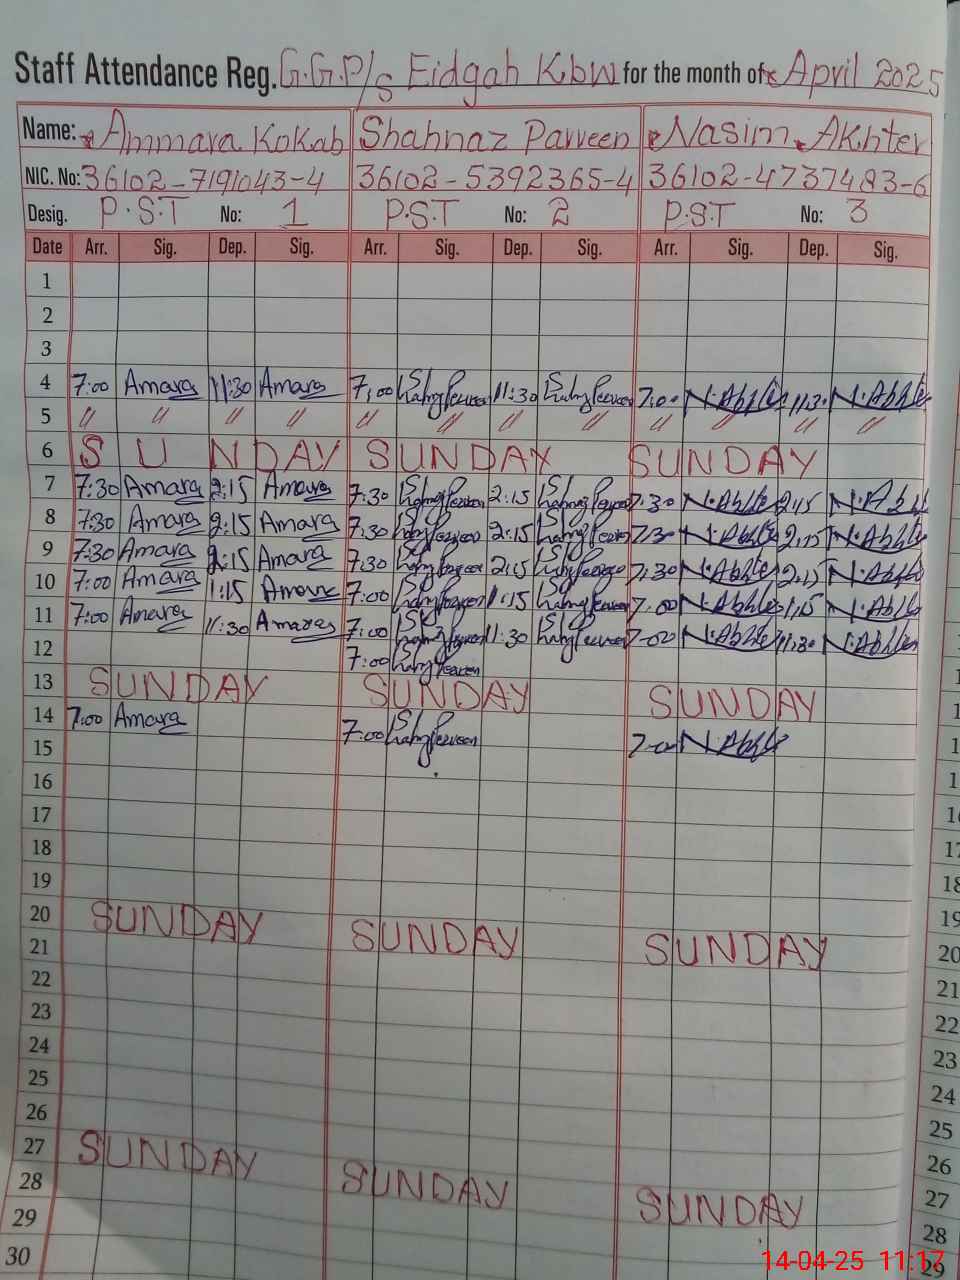 Staff Attendance Reg. G.G.P/s Eidgah Kbw for the month of April 2025
Name: Ammara Kokab Shahnaz Parveen Nasim Akhter
NIC. No: 36102-7191043-4 36102-5392365-4 36102-4737483-6
Desig. P.S.T No: 1 P.S.T No: 2 P.S.T No: 3
Date Arr. Sig. Dep. Sig. Arr. Sig. Dep. Sig. Arr. Sig. Dep. Sig.
1
2
3
4 7:00 Amara 11:30 Amara 7:00 11:30 7:00 11:30
5 〃 〃 〃 〃 〃 〃 〃 〃 〃 〃 〃 〃
6 SUNDAY SUNDAY SUNDAY
7 7:30 Amara 2:15 Amara 7:30 2:15 7:30 2:15
8 7:30 Amara 2:15 Amara 7:30 2:15 7:30 2:15
9 7:30 Amara 2:15 Amara 7:30 2:15 7:30 2:15
10 7:00 Amara 1:15 Amara 7:00 1:15 7:00 1:15
11 7:00 Amara 11:30 Amara 7:00 11:30 7:00 11:30
12 7:00
13 SUNDAY SUNDAY SUNDAY
14 7:00 Amara 7:00 7:00
15
16
17
18
19
20 SUNDAY SUNDAY SUNDAY
21
22
23
24
25
26
27 SUNDAY SUNDAY SUNDAY
28
29
30
17
18
19
20
21
22
23
24
25
26
27
28
29
14-04-25 11:17